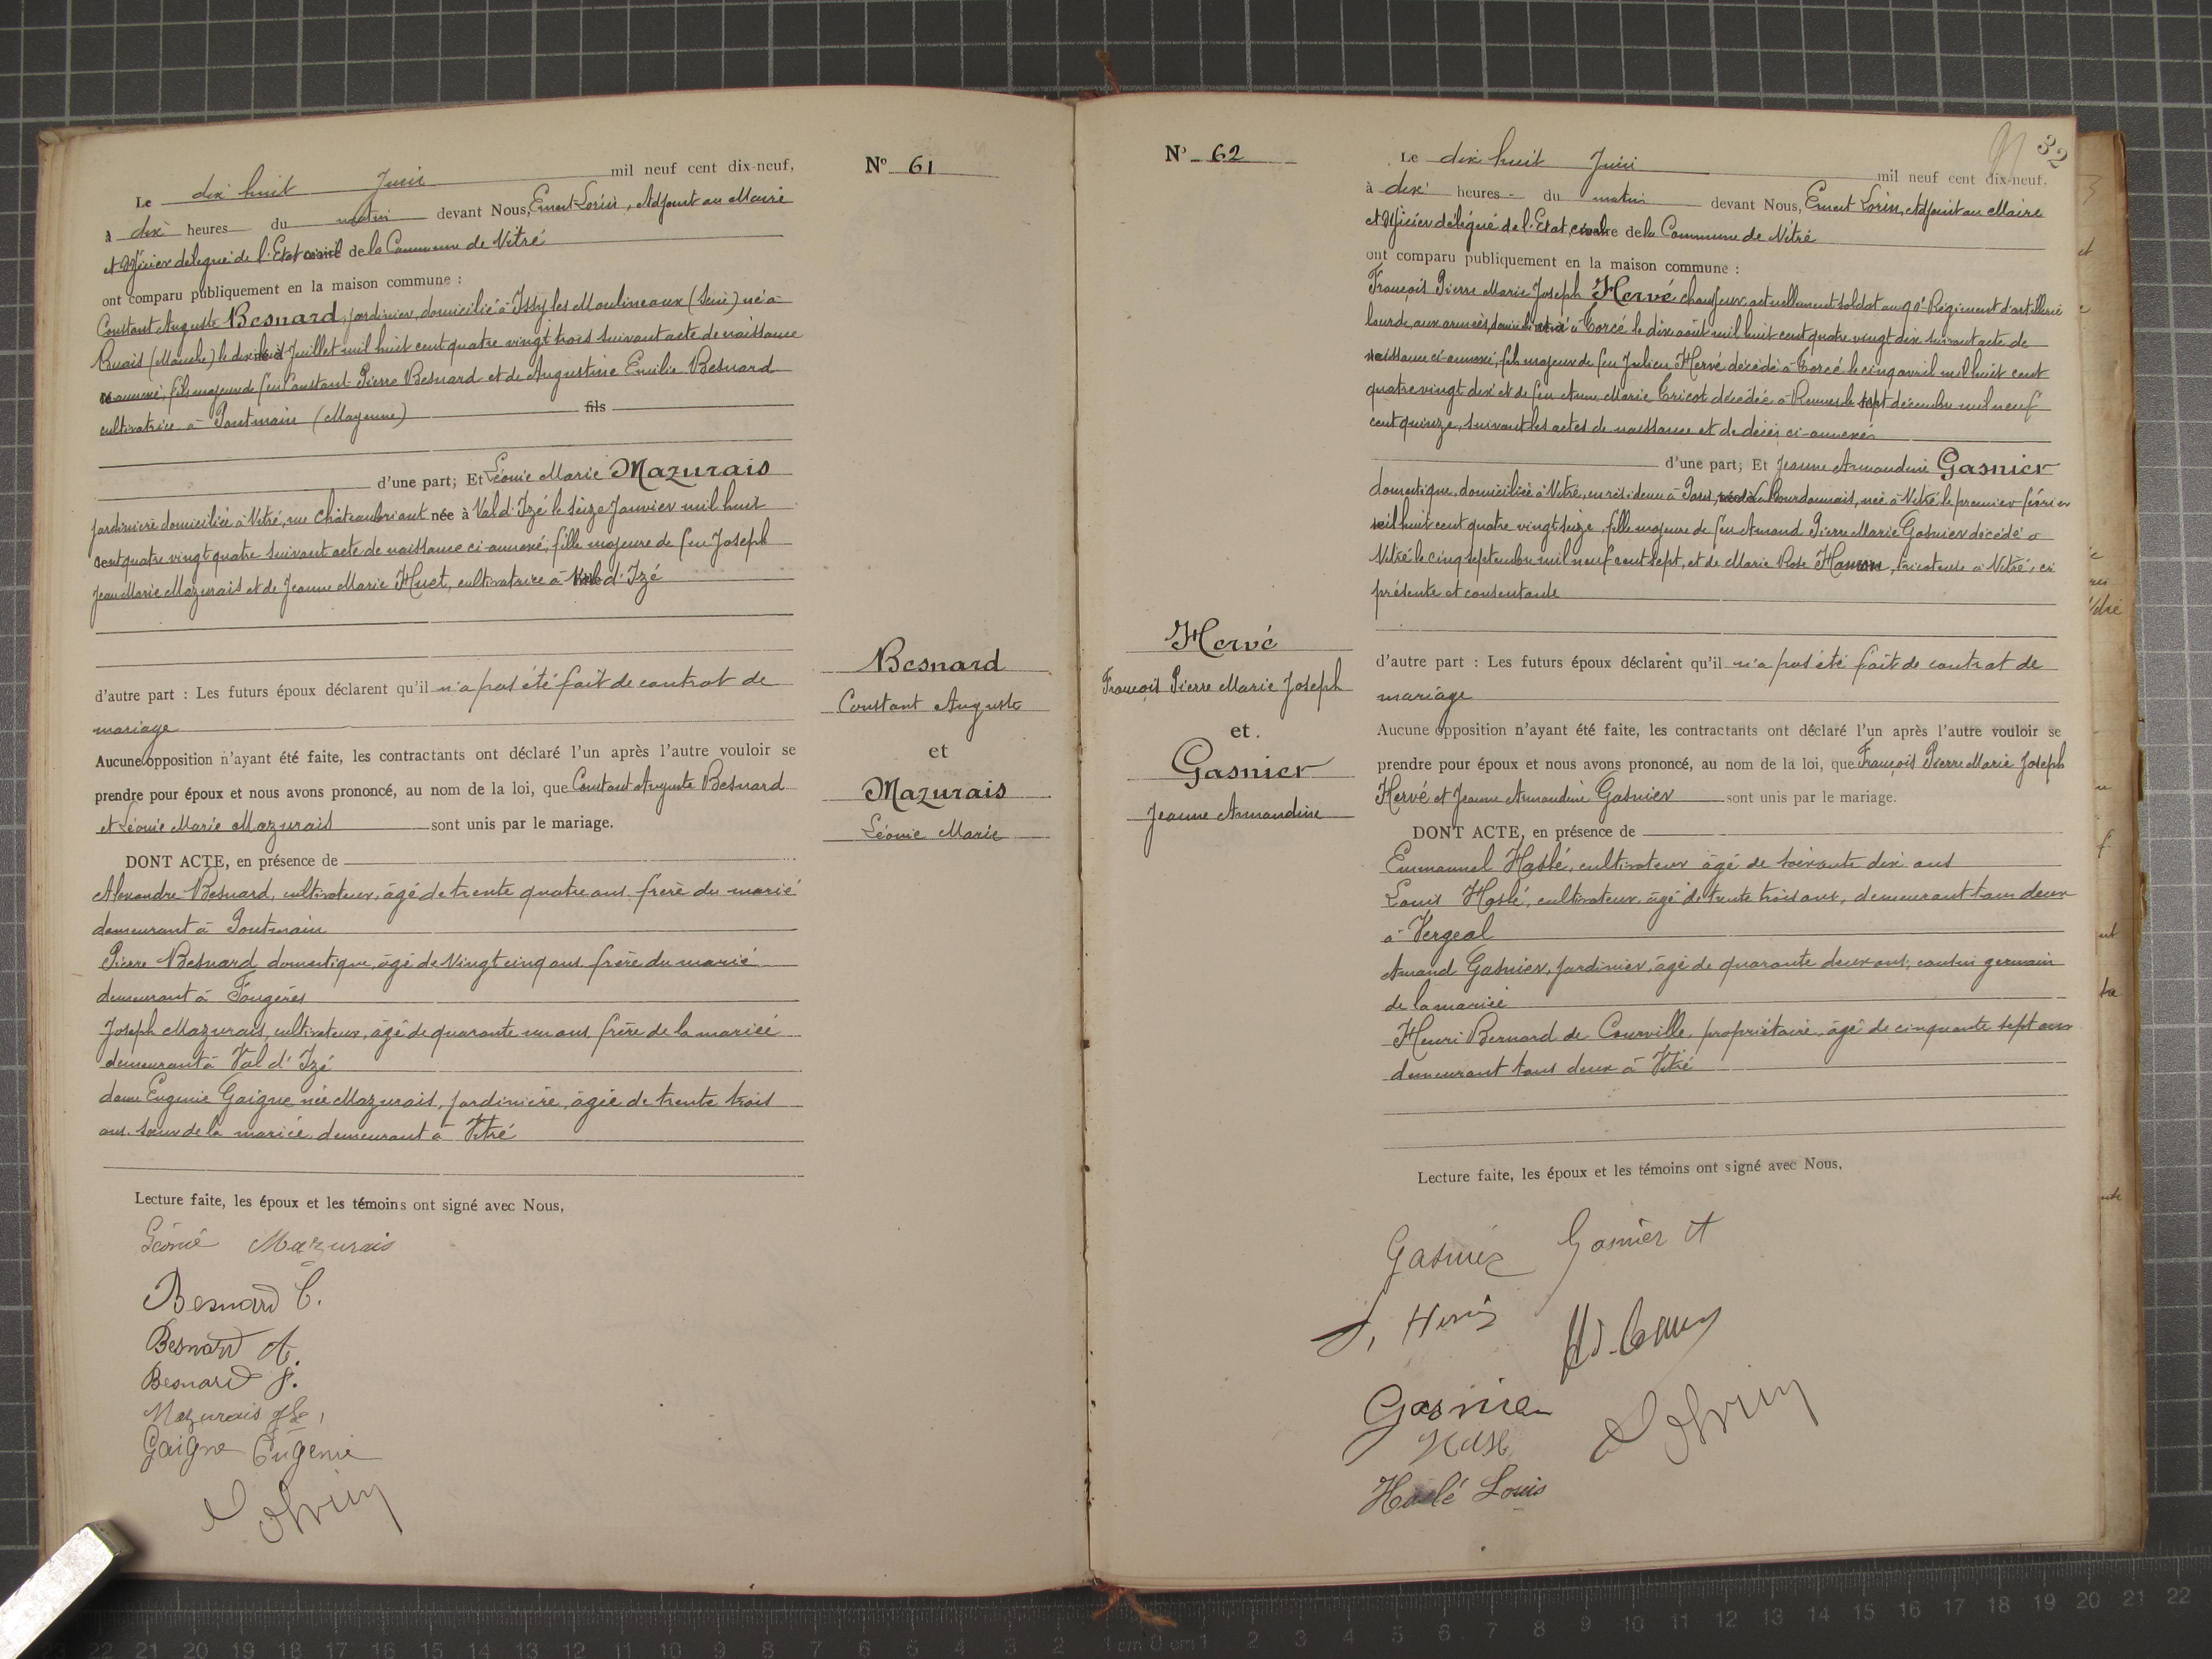 Le dix huit Juin mil neuf cent dix-neuf,
à dix heures du matin devant Nous, Ernest Lorin, Adjoint au Maire
et Officier délégué de l'Etat civil de la Commune de Vitré
ont comparu publiquement en la maison commune :
Constant Auguste Besnard, jardinier, domicilié à Issy les Moulineaux (Seine) né à
Buais (Manche) le dix huit Juillet mil huit cent quatre vingt trois suivant acte de naissance
ci annexé, fils majeur de feu Constant Pierre Besnard et de Augustine Emilie Besnard
cultivatrice à Pontmain (Mayenne) fils
d'une part; Et Léonie Marie Mazurais
jardinière domiciliée à Vitré, rue Châteaubriant née à Val d'Izé le seize Janvier mil huit
cent quatre vingt quatre suivant acte de naissance ci-annexé, fille majeure de feu Joseph
Jean Marie Mazurais et de Jeanne Marie Huet, cultivatrice à Val d'Izé
d'autre part : Les futurs époux déclarent qu'il n'a pas été fait de contrat de
mariage
Aucune opposition n'ayant été faite, les contractants ont déclaré l'un après l'autre vouloir se
prendre pour époux et nous avons prononcé, au nom de la loi, que Constant Auguste Besnard
et Léonie Marie Mazurais sont unis par le mariage.
DONT ACTE, en présence de
Alexandre Besnard, cultivateur, âgé de trente quatre ans frère du marié
demeurant à Pontmain
Pierre Besnard domestique, âgé de vingt cinq ans frère du marié
demeurant à Fougères
Joseph Mazurais, cultivateur, âgé de quarante un ans frère de la mariée
demeurant à Val d'Izé
dame Eugénie Gaigne née Mazurais, jardinière, âgée de trente trois
ans. sœur de la mariée demeurant à Vitré
Lecture faite, les époux et les témoins ont signé avec Nous,
Léonie Mazurais
Besnard C.
Besnard A.
Besnard P.
Mazurais
Gaigne Eugénie
Lorin
N° 61
Besnard
Constant Auguste
et
Mazurais
Léonie Marie
N° 62
Hervé
François Pierre Marie Joseph
et.
Gasnier
Jeanne Armandine
32
Le dix huit Juin mil neuf cent dix-neuf,
à dix heures du matin devant Nous, Ernest Lorin, Adjoint au Maire
et Officier délégué de l'Etat civil de la Commune de Vitré
ont comparu publiquement en la maison commune :
François Pierre Marie Joseph Hervé chauffeur, actuellement soldat au 90e Régiment d'artillerie
lourde, aux armées, domicilié à Torcé le dix août mil huit cent quatre vingt dix suivant acte de
naissance ci-annexé, fils majeur de feu Julien Hervé décédé à Torcé le cinq avril mil huit cent
quatre vingt dix et de feu Anne Marie Tricot décédée à Rennes le sept décembre mil neuf
cent quinze, suivant les actes de naissance et de décès ci-annexés
d'une part; Et Jeanne Armandine Gasnier
domestique, domiciliée à Vitré, en résidence à Paris, Labourdonnais, née à Vitré le premier février
mil huit cent quatre vingt seize fille majeure de feu Armand Pierre Marie Gasnier décédé à
Vitré le cinq septembre mil neuf cent sept, et de Marie Rose Hamon, tricoteuse à Vitré, ci
présente et consentante
d'autre part : Les futurs époux déclarent qu'il n'a pas été fait de contrat de
mariage
Aucune opposition n'ayant été faite, les contractants ont déclaré l'un après l'autre vouloir se
prendre pour époux et nous avons prononcé, au nom de la loi, que François Pierre Marie Joseph
Hervé et Jeanne Armandine Gasnier sont unis par le mariage.
DONT ACTE, en présence de
Emmanuel Haslé, cultivateur âgé de soixante dix ans
Louis Haslé, cultivateur âgé de trente trois ans, demeurant tous deux
à Vergeal
Amand Gasnier, jardinier, âgé de quarante deux ans, cousin germain
de la mariée
Henri Bernard de Courville, propriétaire, âgé de cinquante sept ans
demeurant tous deux à Vitré
Lecture faite, les époux et les témoins ont signé avec Nous,
Gasnier Gasnier A
F. Hervé
Gasnier
Haslé Louis
Lorin
22 21 20 19 18 17 16 15 14 13 12 11 10 9 8 7 6 5 4 3 2 1 cm 0 cm 1 2 3 4 5 6 7 8 9 10 11 12 13 14 15 16 17 18 19 20 21 22